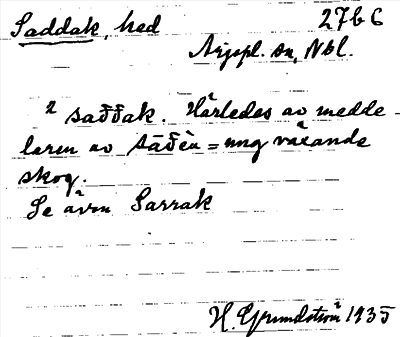 Saddak, hed 27b6
Arjepl. sn, Nbl.
2 saδ̄δak. Härledes av medde-
laren av sāδēu = ung växande
skog.
Se även Sarrak
H. Grundström 1935